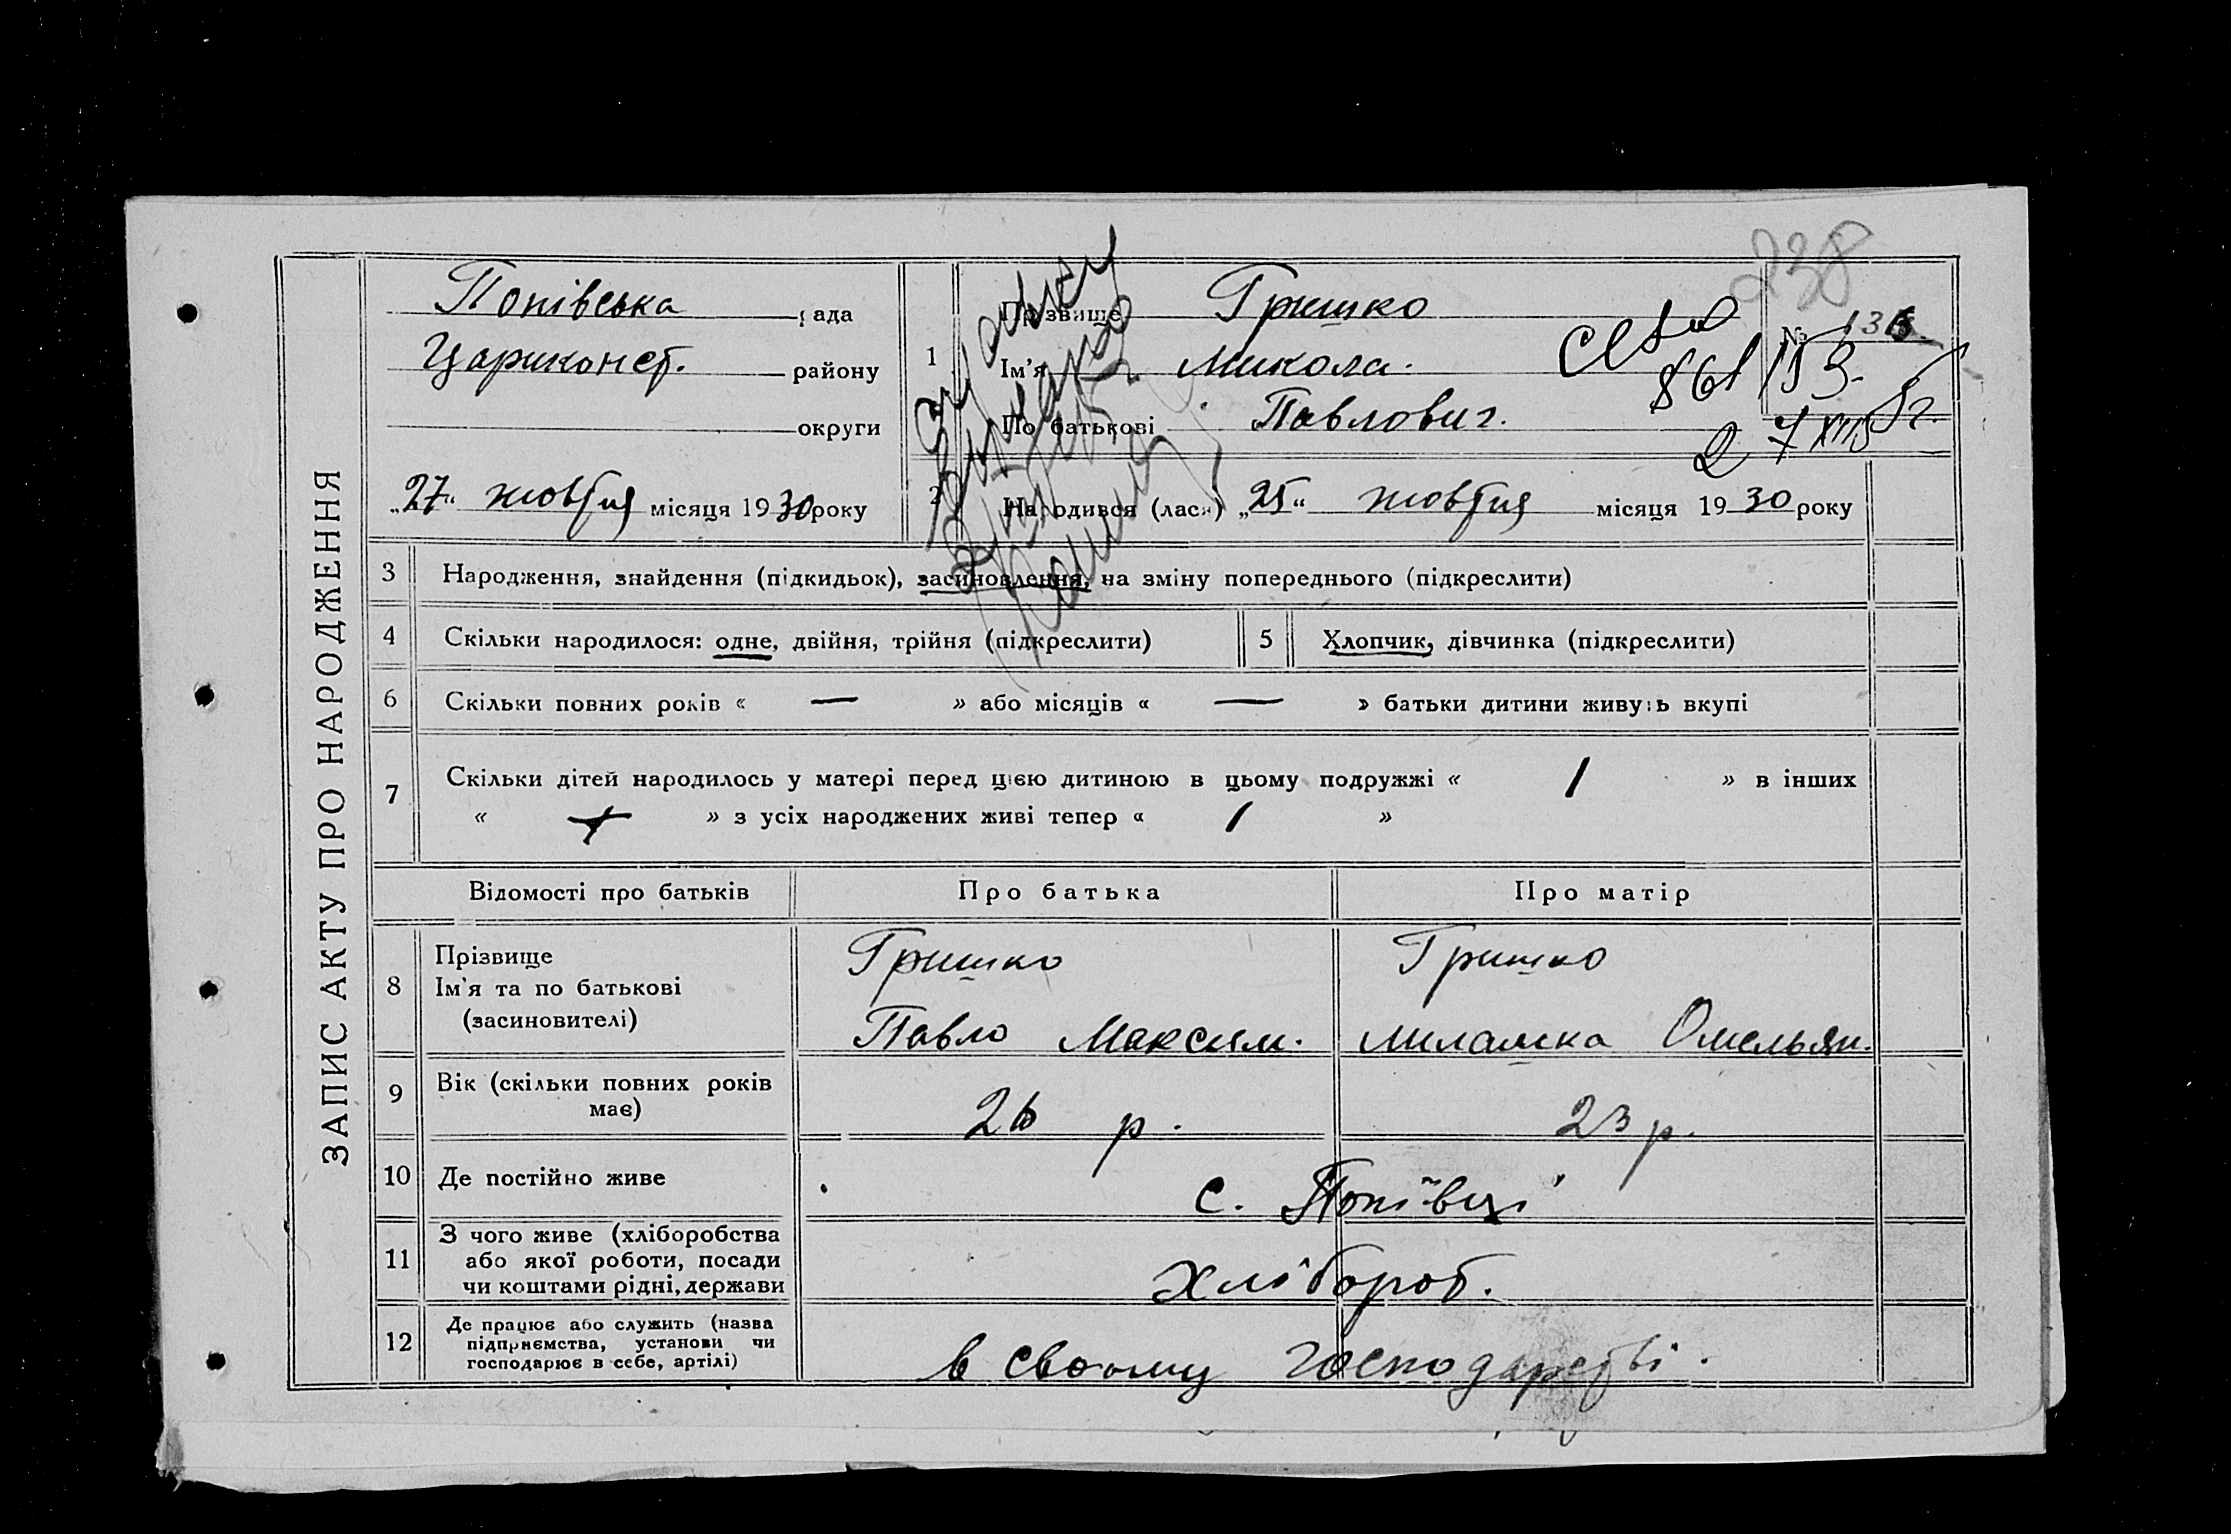 238
ЗАПИС АКТУ ПРО НАРОДЖЕННЯ
Попівська рада
Цариконст. району
округи
„27“ жовтня місяця 1930 року
1
Прізвище Гришко
Ім'я Микола.
По батькові Павлович.
№ 13
861153
2
Народився (лася) „25“ жовтня місяця 1930 року
3 Народження, знайдення (підкидьок), засиновлення, на зміну попереднього (підкреслити)
4 Скільки народилося: одне, двійня, трійня (підкреслити)
5 Хлопчик, дівчинка (підкреслити)
6 Скільки повних років « — » або місяців « — » батьки дитини живуть вкупі
7 Скільки дітей народилось у матері перед цією дитиною в цьому подружжі « 1 » в інших
« » з усіх народжених живі тепер « 1 »
Відомості про батьків Про батька Про матір
8 Прізвище
Ім'я та по батькові
(засиновителі)
Гришко
Павло Максим.
Гришко
Милашка Омельян.
9 Вік (скільки повних років
має)
26 р. 23 р.
10 Де постійно живе с. Попівці
11 З чого живе (хліборобства
або якої роботи, посади
чи коштами рідні, держави
Хлібороб.
12 Де працює або служить (назва
підприємства, установи чи
господарює в себе, артілі)
в своому господарстві.